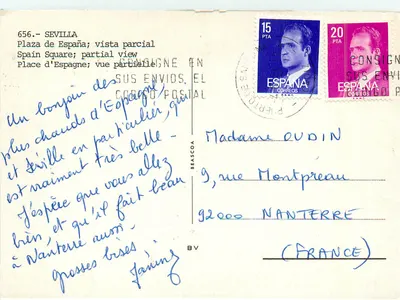 656.- SEVILLA
Plaza de España; vista parcial
Spain Square; partial view
Place d'Espagne; vue partielle
CONSIGNE EN
SUS ENVIOS, EL
CODIGO POSTAL
15
PTA
ESPAÑA
CORREOS
20
PTA
ESPAÑA
CORREOS
CONSIGNE
SUS ENVIO
Un bonjour des
plus chauds d'Espagne,
et Séville en particulier, qui
est vraiment très belle.
J'espère que vous allez
bien, et qu'il fait beau
à Nanterre aussi.
Grosses bises
Janine
BRASCOA
BV
Madame OUDIN
9, rue Montpreau
92000 NANTERRE
(FRANCE)